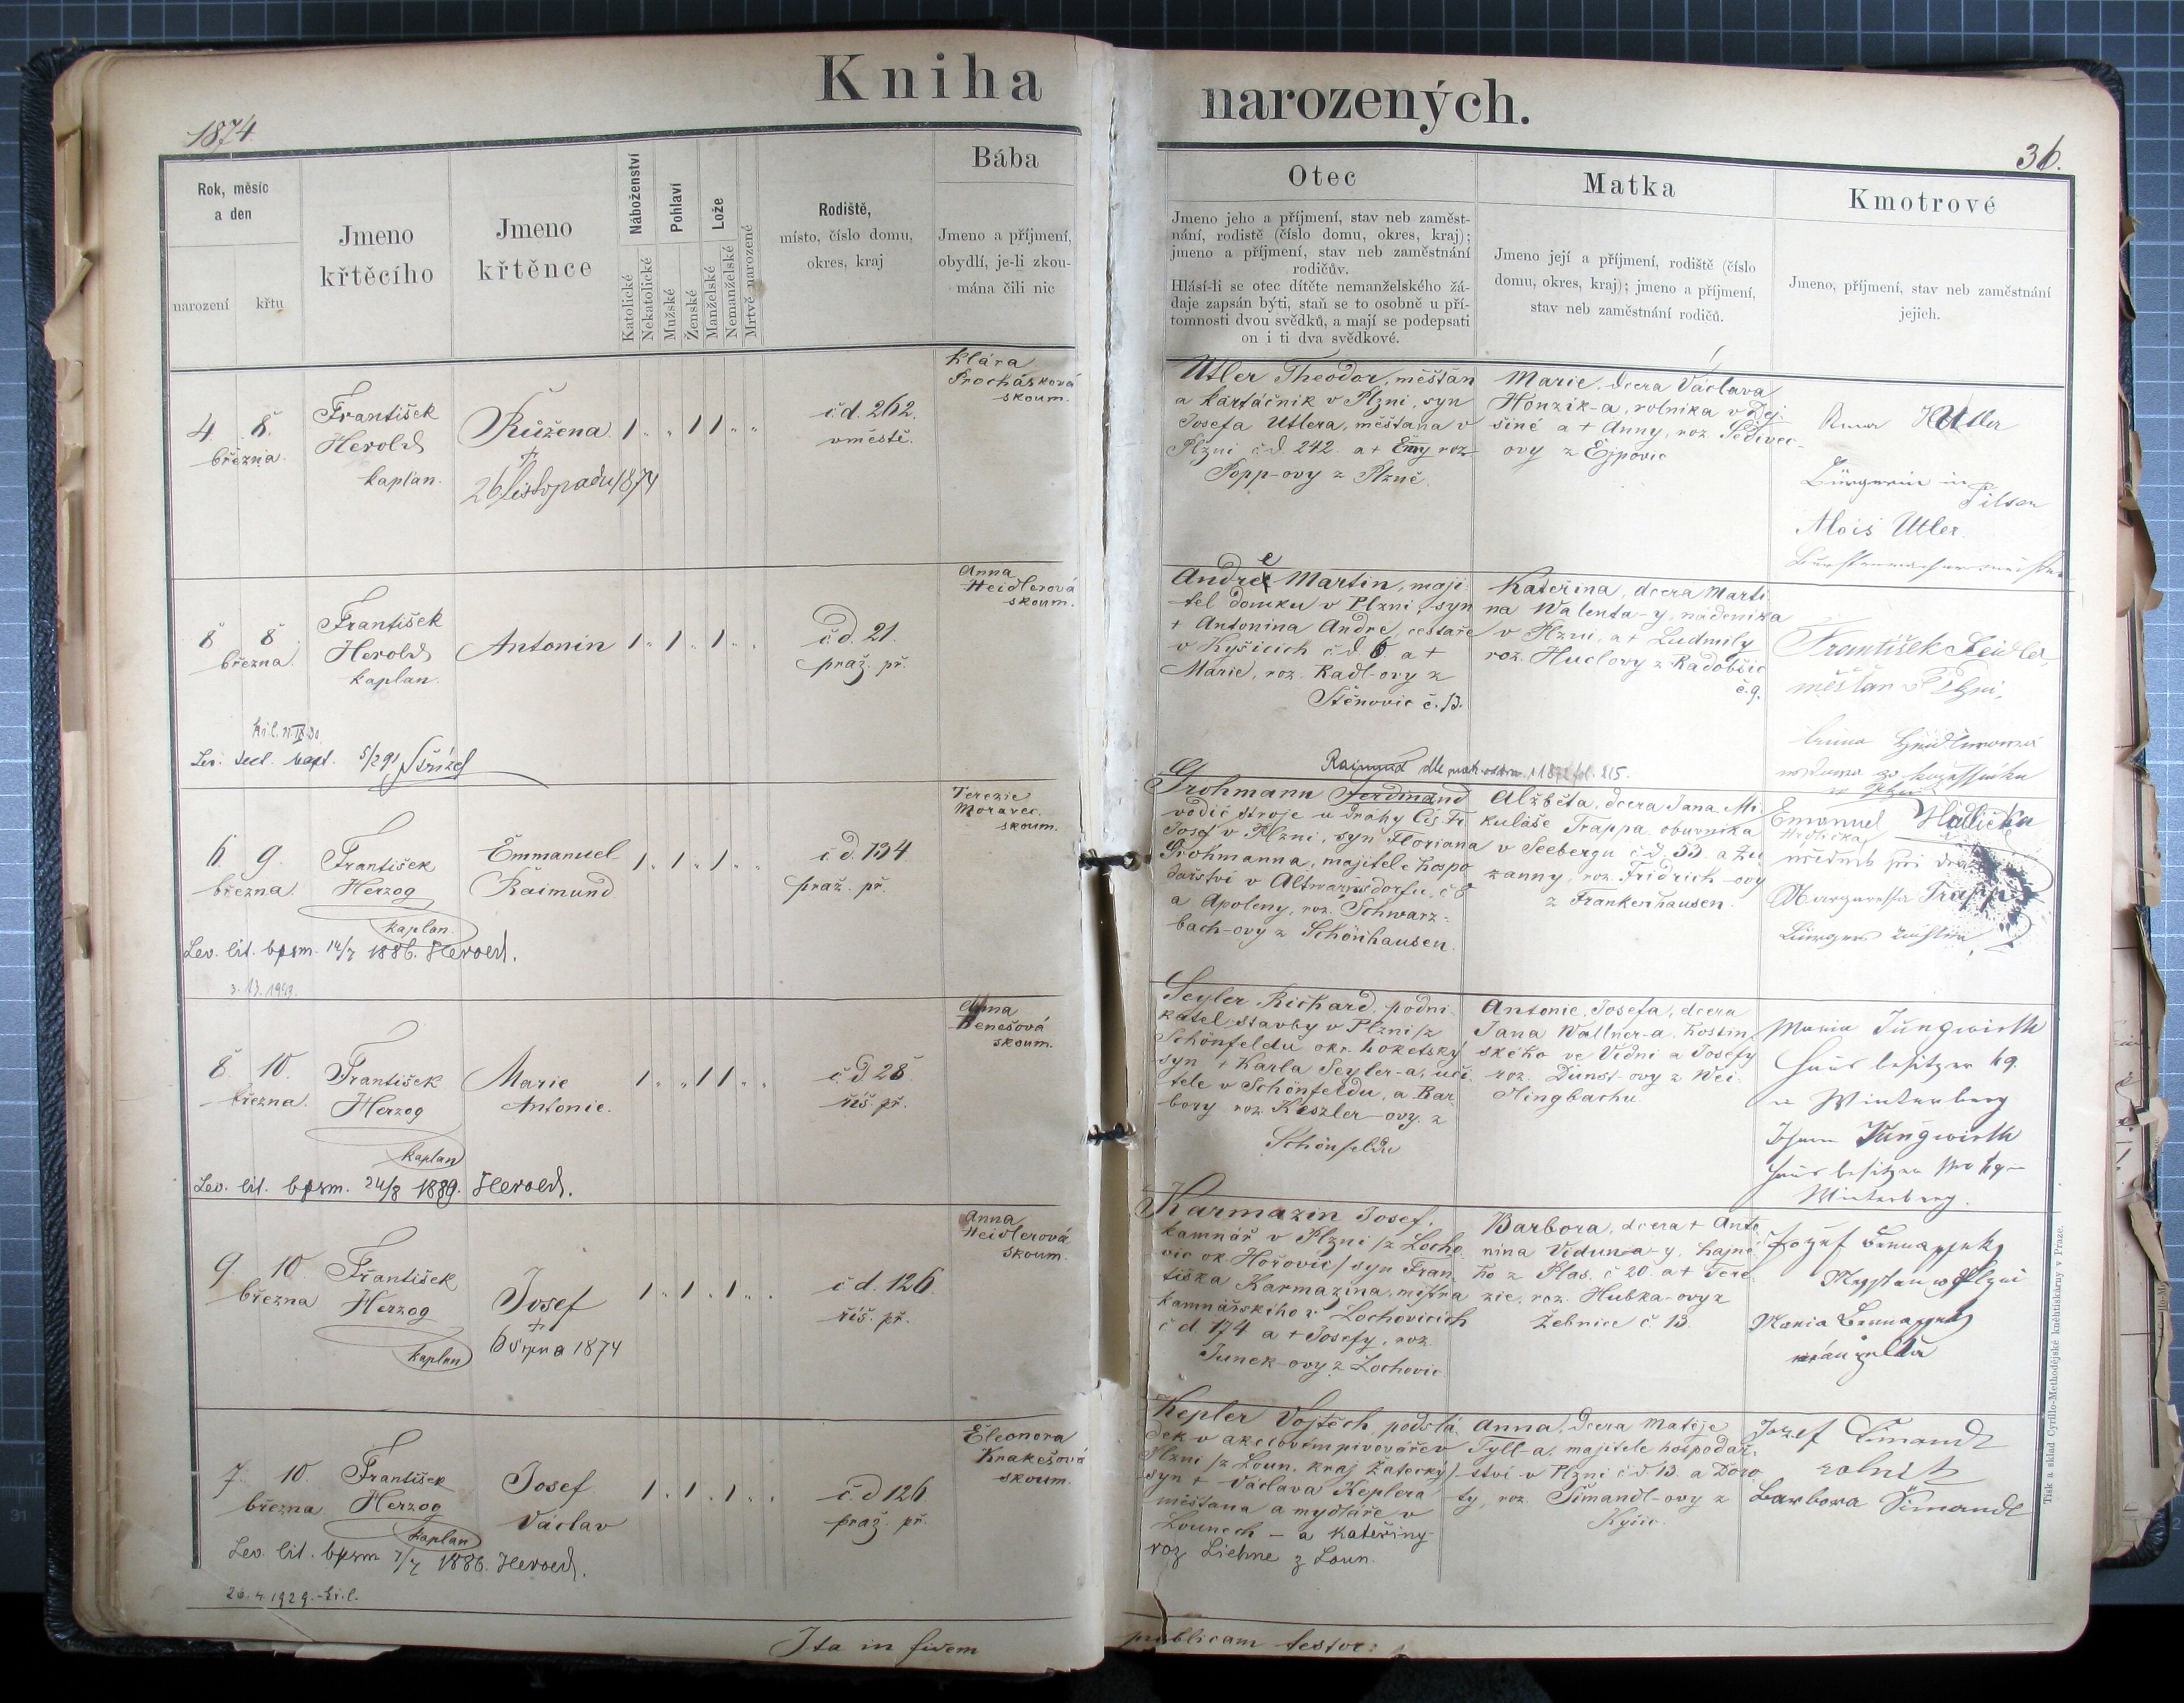 Kniha narozených.
1874.
36.
Rok, měsíc
a den
narození
křtu
Jmeno
křtěcího
Jmeno
křtěnce
Náboženství
Katolické
Nekatolické
Pohlaví
Mužské
Ženské
Lože
Manželské
Nemanželské
Mrtvě narozené
Rodiště,
místo, číslo domu,
okres, kraj
Bába
Jmeno a příjmení,
obydlí, je-li zkou-
mána čili nic
Otec
Jmeno jeho a příjmení, stav neb zaměst-
nání, rodistě (číslo domu, okres, kraj);
jmeno a příjmení, stav neb zaměstnání
rodičův.
Hlásí-li se otec dítěte nemanželského žá-
daje zapsán býti, staň se to osobně u pří-
tomnosti dvou svědků, a mají se podepsati
on i ti dva svědkové.
Matka
Jmeno její a příjmení, rodiště (číslo
domu, okres, kraj); jmeno a příjmení,
stav neb zaměstnání rodičů.
Kmotrové
Jmeno, příjmení, stav neb zaměstnání
jejich.
4. 8.
března.
František
Herold
kaplan.
Růžena
†
26 listopadu 1874
1 " " 1 1 " "
č d. 262.
v městě.
Klára
Procházková
skoum.
Utler Theodor, měšťan
a kartáčník v Plzni, syn
Josefa Utlera, měšťana v
Plzni č d. 242. a + Emy roz
Popp-ovy z Plzně.
Marie, dcera Václava
Honzík-a, rolníka v Dej
šině a + Anny, roz. Šedivec-
ovy z Ejpovic
Anna Utler
Bürgerin in
Pilsen
Alois Utler
Bürstenmachermeister
8 8
března.
František
Herold
kaplan.
Antonín
1 " 1 " 1 " "
č. d. 21.
praž. př.
Anna
Heidlerová
skoum.
Andre Martin, maji-
tel domku v Plzni, syn
+ Antonina Andre, cestaře
v Kyšicích č d. 6 a +
Marie, roz. Radl-ovy z
Štěnovic č. 13.
Kateřina, dcera Marti
na Walenta-y, nádeníka
v Plzni, a + Ludmily
roz. Huclovy z Radobšic
č. 9.
František Heidler,
měšťan v Plzni,
6. 9.
března.
František
Herzog
kaplan.
Emmanuel
Raimund
1 " 1 " 1 " "
č d. 134
praž. př.
Terezie
Moravec.
skoum.
Raimund dle
Grohmann Ferdinand
vodič stroje u dráhy Cís. Fr.
Josef v Plzni, syn Floriana
Grohmanna, majitele hospo
dařství v Altwarnsdorfu, č 8
a Apoleny, roz. Schwarz-
bach-ovy z Schönhausen.
Alžběta, dcera Jana Mi-
kuláše Trappa, obuvníka
v Seebergu č d. 53. a Zu
zanny, roz. Fridrich-ovy
z Frankenhausen.
Emanuel Hdlička
Hrdlička
úředník při dráze
Margaretha Trapp
Lev. lit. bpsm. 14/7 1886. Herold.
8. 10.
března.
František
Herzog
kaplan
Marie
Antonie.
1 " " 1 1 " "
č. d 28
říš. př.
Anna
Benešová
skoum.
Seyler Richard, podni-
katel stavby v Plzni /z
Schönfeldu okr. Loketský
syn + Karla Seyler-a, uči-
tele v Schönfeldu, a Bar-
bory roz. Keszler-ovy. z
Schönfeldu
Antonie, Josefa, dcera
Jana Wallner-a, hostin-
ského ve Vídni a Josefy
roz. Dunst-ovy z Wei-
tlingbachu.
Maria Jungwirth
Hausbesitzer
Winterberg
Johann Jungwirth
Hausbesitzer
Winterberg.
Lev. lit. bpsm. 24/8 1889. Herold.
9 10.
března
František
Herzog
kaplan
Josef
†
6 srpna 1874
1 " 1 " 1 " "
č d. 126.
říš. př.
Anna
Heidlerová
skoum.
Karmazin Josef,
kamnář v Plzni /z Locho-
vic ok. Hořovic/ syn Fran-
tiška Karmazina, mistra
kamnářského v Lochovicích
č d. 174 a + Josefy, roz.
Junek-ovy z Lochovic.
Barbora, dcera + Anto
nina Vidun-a-y, hajné-
ho z Plas. č 20. a + Tere-
zie, roz. Hubka-ovy z
Žebnice č. 13.
manželka
7. 10.
března
František
Herzog
kaplan
Josef
Václav
1 " 1 " 1 " "
č. d 126.
praž. př.
Eleonora
Krakešová
skoum.
Kepler Vojtěch, podstá-
dek v akciovém pivovářev
Plzni /z Loun. kraj Žatecký/
syn + Václava Keplera
měšťana a mydláře v
Lounech - a Kateřiny
roz Liehne z Loun.
Anna, dcera Matěje
Tyll-a, majitele hospodař-
ství v Plzni č d 13. a Doro
ty, roz. Šimandl-ovy z
Kyšic.
Jozef Šimandl
rolník
Barbora Šimandl
Lev. lit. bpsm 7/7 1886. Herold.
26. 4. 1929.
Ita in fidem publicam testor:
Tisk a sklad Cyrillo-Methodějské kněhtiskárny v Praze.